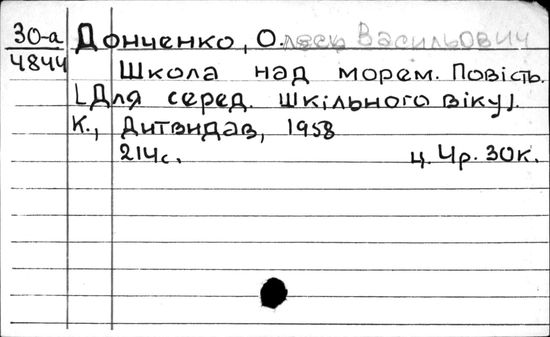 30-а Донченко, Олесь Васильович
4844 Школа над морем. Повість.
[Для серед. шкільного віку].
К., Дитвидав, 1958
214с. ц. 4р. 30к.